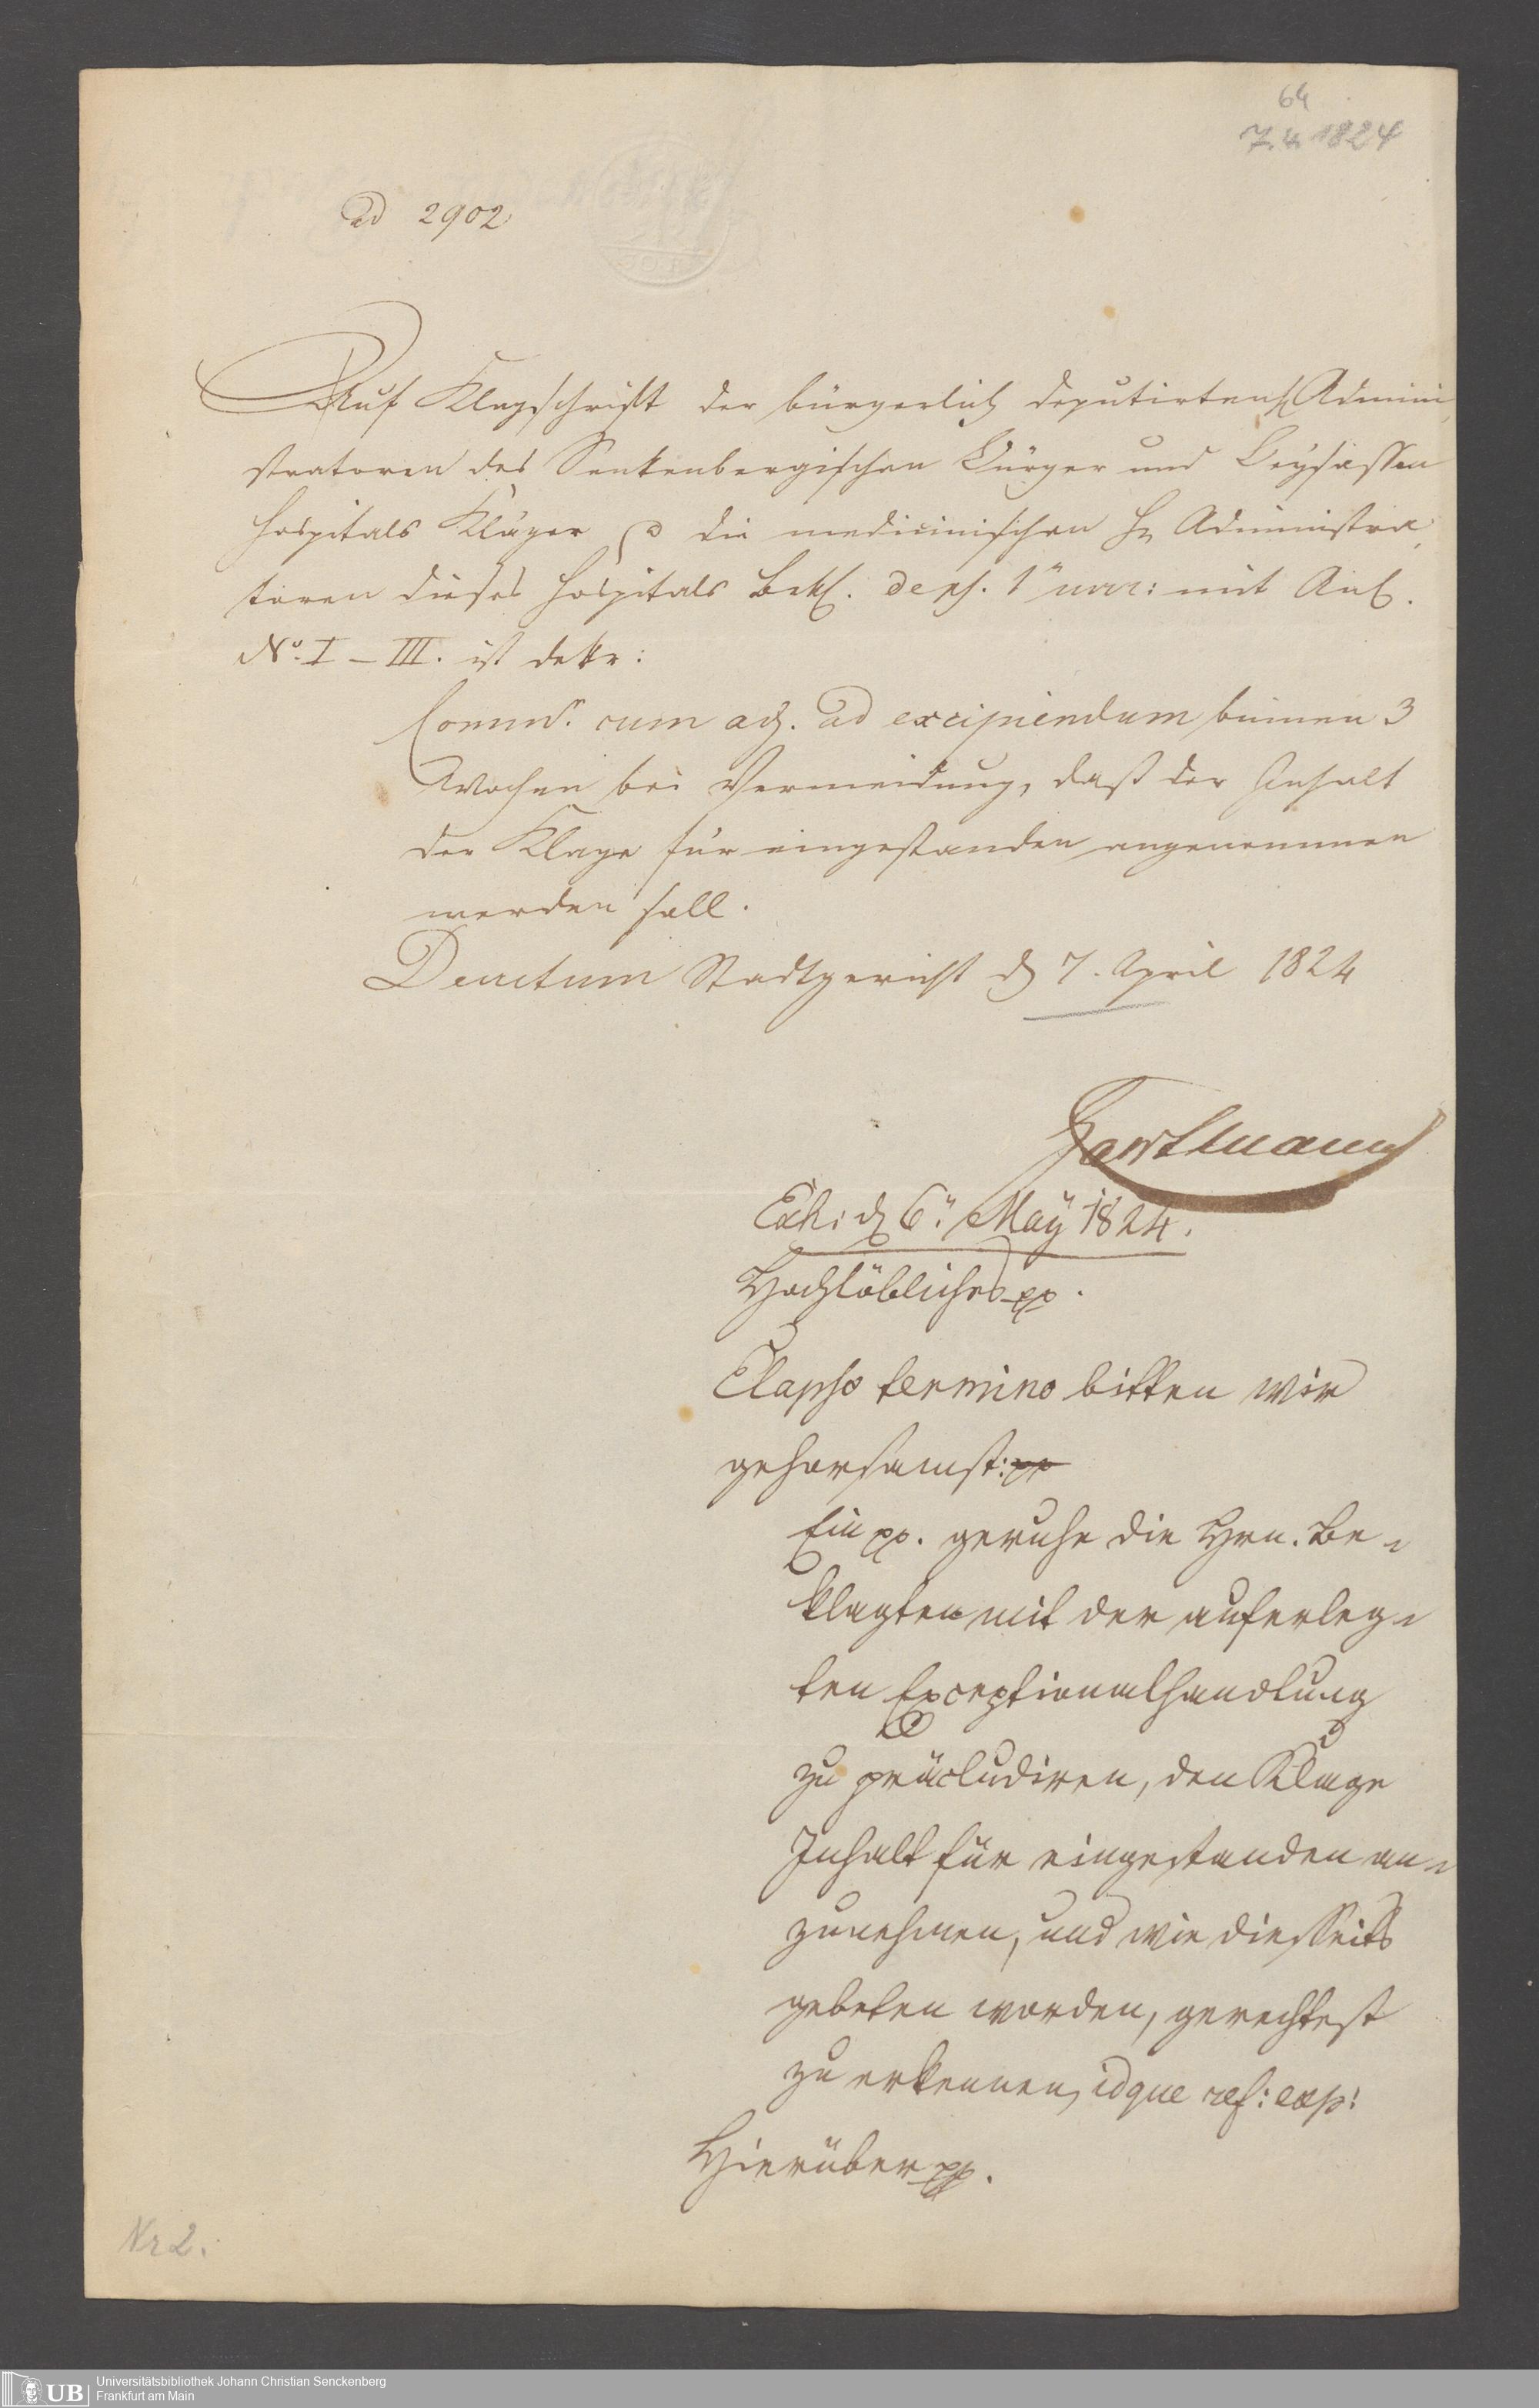 64
7.4.1824
ad 2902
Auf Klagschrift der bürgerlich deputirten Admini
stratoren des Senkenbergischen Bürger und Beysassen
Hospitals Kläger die medicinischen H Administra
toren dieses Hospitals Bekl. de ps. 1 mit Anl.
No. I – III. ist dekr:
Commr. cum ad excipiendum binnen 3
Wochen bei Vermeidung, daß der Inhalt
der Klage für eingestanden angenommen
werden soll.
Decretum Stadtgericht d 7. April 1824
Hartmann
Exh: d 6n. May 1824.
Hochlöbliches pp.
Elapso termino bitten wir
gehorsamst: pp
Ein pp. geruhe die Hrn. Be-
klagten mit der auferleg-
ten Exceptionalhandlung
zu präcludiren, den Klage
Inhalt für eingestanden an-
zunehmen, und wie diesseits
gebeten worden, gerechtest
zu erkennen, idque ref: exp:
Hierüber pp.
Nr 2.
UB
Universitätsbibliothek Johann Christian Senckenberg
Frankfurt am Main